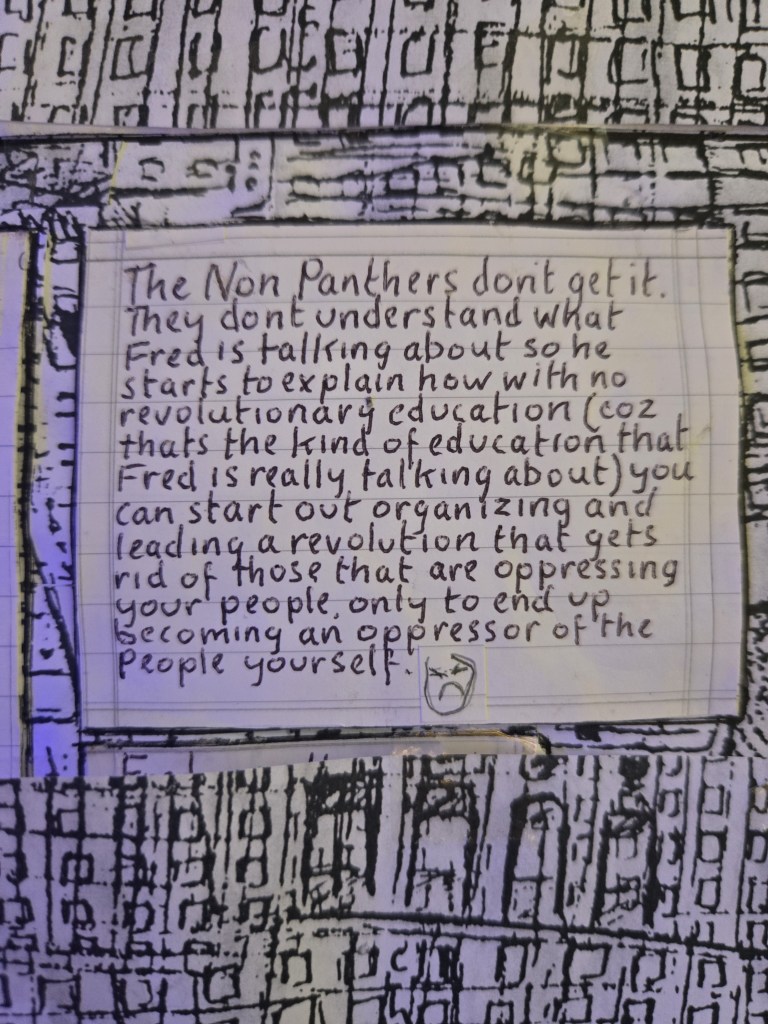 The Non Panthers dont get it.
They dont understand what
Fred is talking about so he
starts to explain how with no
revolutionary education (coz
thats the kind of education that
Fred is really talking about) you
can start out organizing and
leading a revolution that gets
rid of those that are oppressing
your people, only to end up
becoming an oppressor of the
People yourself.